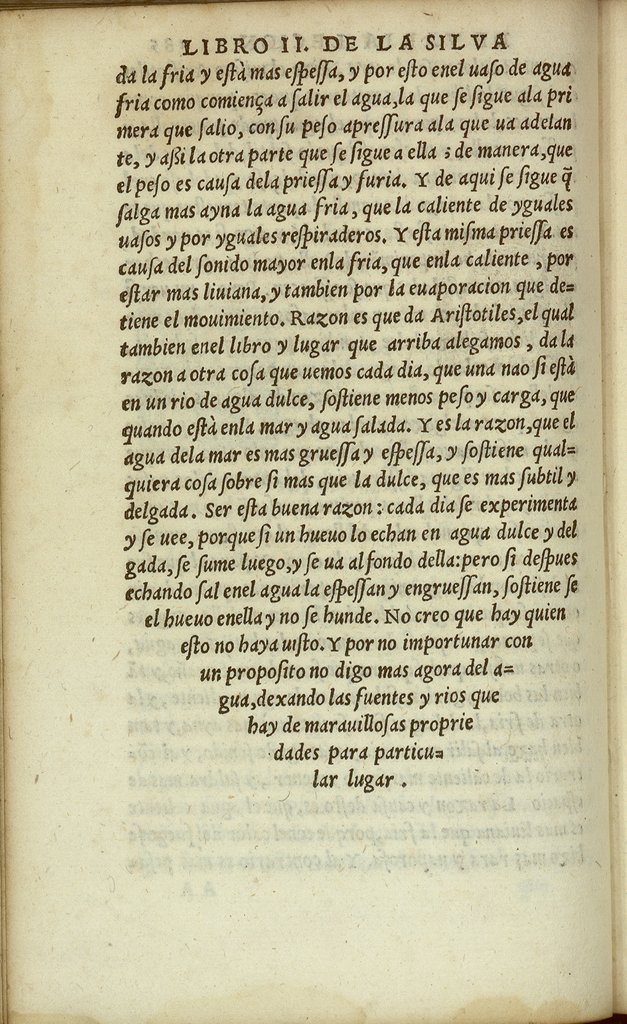 LIBRO II. DE LA SILVA
da la fria y està mas eſpeſſa, y por eſto enel uaſo de agua
fria como comiença a ſalir el agua,la que ſe ſigue ala pri
mera que ſalio, con ſu peſo apreſſura ala que ua adelan
te, y aßi la otra parte que ſe ſigue a ella ; de manera,que
el peſo es cauſa dela prieſſa y furia. Y de aqui ſe ſigue q̃
ſalga mas ayna la agua fria, que la caliente de yguales
uaſos y por yguales reſpiraderos. Y eſta miſma prieſſa es
cauſa del ſonido mayor enla fria, que enla caliente , por
eſtar mas liuiana, y tambien por la euaporacion que de=
tiene el mouimiento. Razon es que da Ariſtotiles,el qual
tambien enel libro y lugar que arriba alegamos , da la
razon a otra coſa que uemos cada dia, que una nao ſi eſtà
en un rio de agua dulce, ſoſtiene menos peſo y carga, que
quando eſtà enla mar y agua ſalada. Y es la razon,que el
agua dela mar es mas grueſſa y eſpeſſa, y ſoſtiene qual=
quiera coſa ſobre ſi mas que la dulce, que es mas ſubtil y
delgada. Ser eſta buena razon : cada dia ſe experimenta
y ſe uee, porque ſi un hueuo lo echan en agua dulce y del
gada, ſe ſume luego,y ſe ua al fondo della:pero ſi deſpues
echando ſal enel agua la eſpeſſan y engrueſſan, ſoſtiene ſe
el hueuo enella y no ſe hunde. No creo que hay quien
eſto no haya uiſto. Y por no importunar con
un propoſito no digo mas agora del a=
gua,dexando las fuentes y rios que
hay de marauilloſas proprie
dades para particu=
lar lugar .